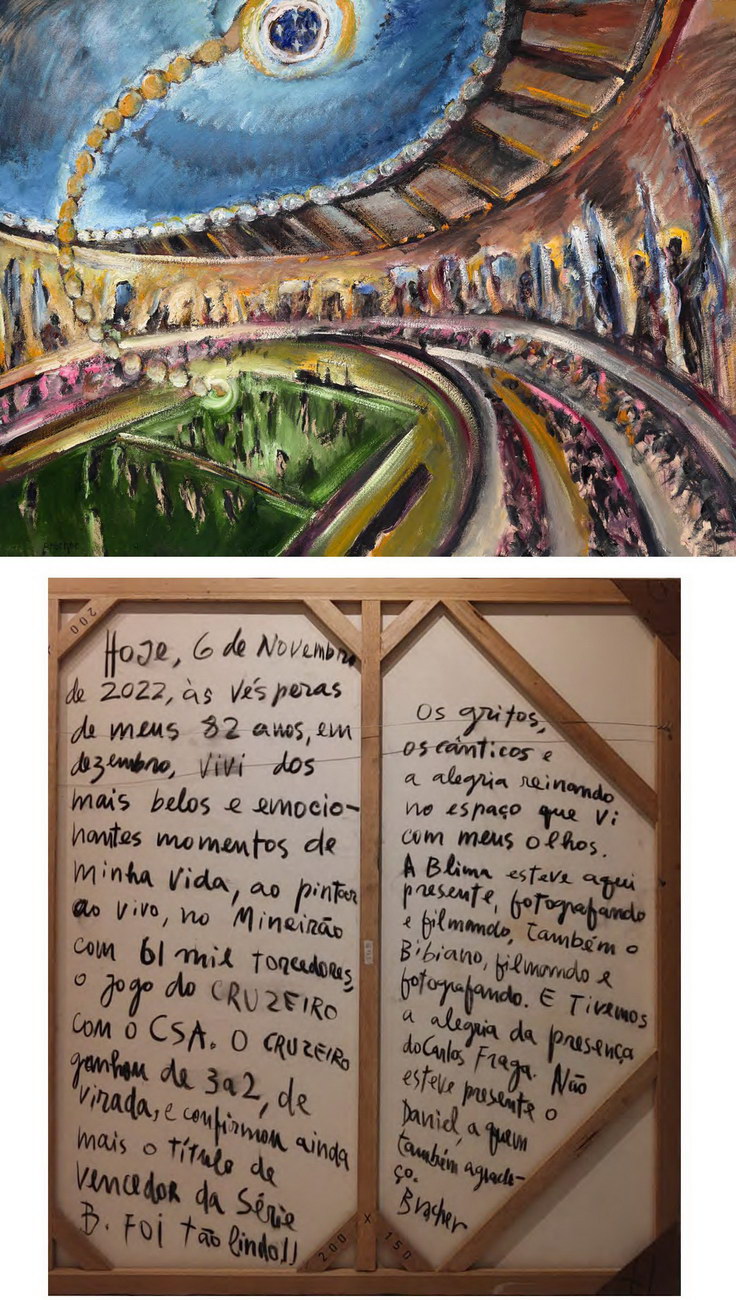 Bracher
200
Hoje, 6 de Novembro
de 2022, às vésperas
de meus 82 anos, em
dezembro, vivi dos
mais belos e emocio-
nantes momentos de
minha vida, ao pintar
ao vivo, no Mineirão
com 61 mil torcedores,
o jogo do CRUZEIRO
com o CSA. O CRUZEIRO
ganhou de 3 a 2, de
virada, e confirmou ainda
mais o título de
vencedor da Série
B. Foi tão lindo!!
Os gritos,
os cânticos e
a alegria reinando
no espaço que vi
com meus olhos.
A Blima esteve aqui
presente, fotografando
e filmando, também o
Bibiano, filmando e
fotografando. E Tivemos
a alegria da presença
do Carlos Fraga. Não
esteve presente o
Daniel, a quem
também agrade-
ço.
Bracher
200 X 150